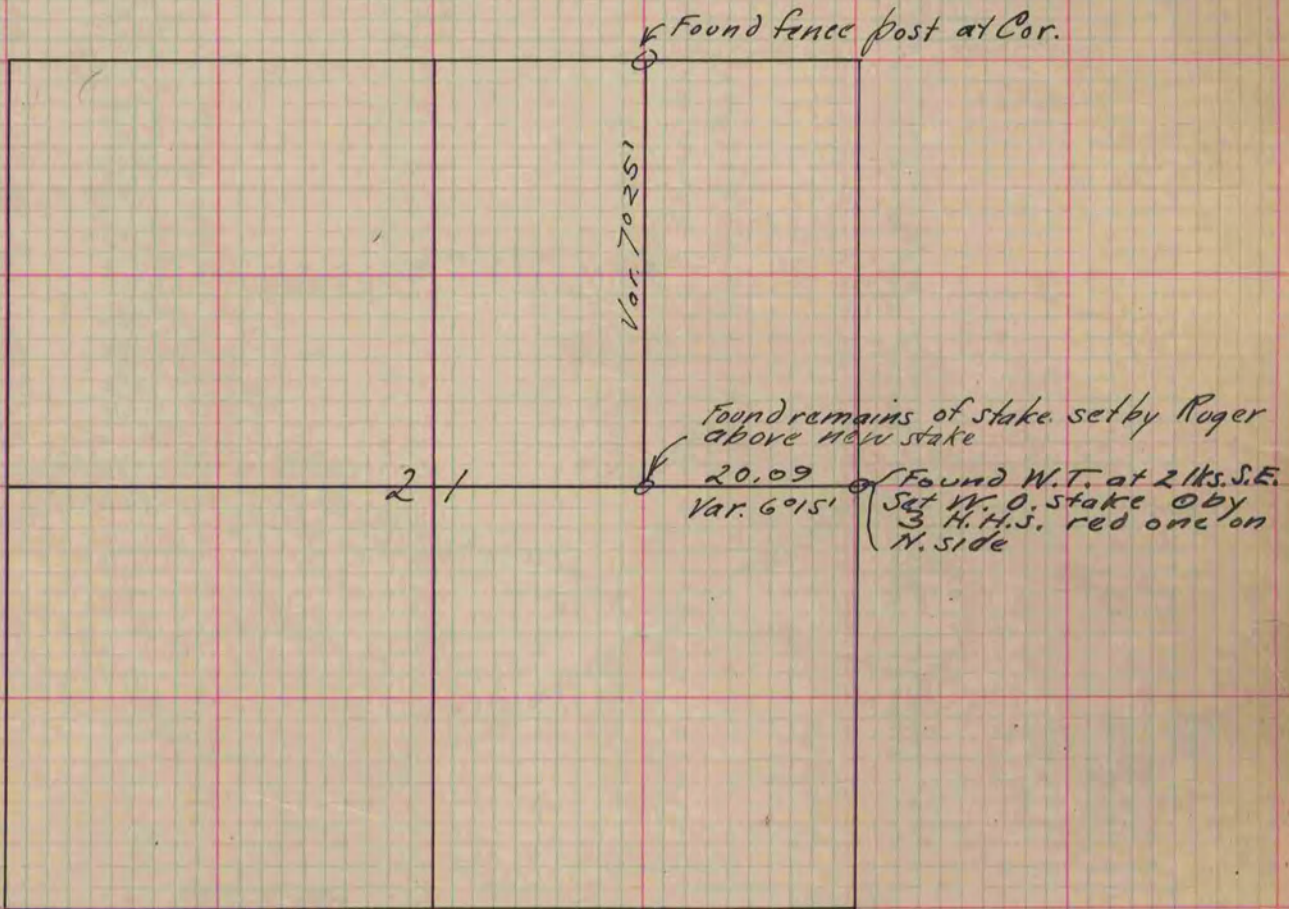 Found fence post at Cor.
Var. 7°25'
Found remains of stake set by Ruger
above new stake
2 1
20.09
Var. 6°15'
Found W.T. at 21ks. S.E.
Set W.O. stake O by
3 H.H.S. red one on
N. side